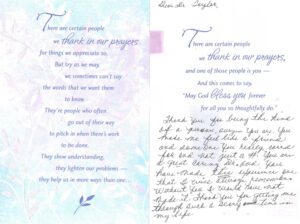 There are certain people
we thank in our prayers
for things we appreciate so,
But try as we may,
we sometimes can't say
the words that we want them
to know.
They're people who often
go out of their way
to pitch in when there's work
to be done.
They show understanding,
they lighten our problems —
they help us in more ways than one...
Dear Dr. Taylor
There are certain people
we thank in our prayers,
and one of those people is you —
And this comes to say,
"May God bless you forever
for all you so thoughtfully do."
Thank You for being the kind
of a person you are. You
made me feel like a friend
and someone you really cared
for and not just a #. You are
a Great Caring Dr. You
have made this experience one
that I will always remember
Without you I would have not
made it. Thank you for getting me
through such a scary time in
my life